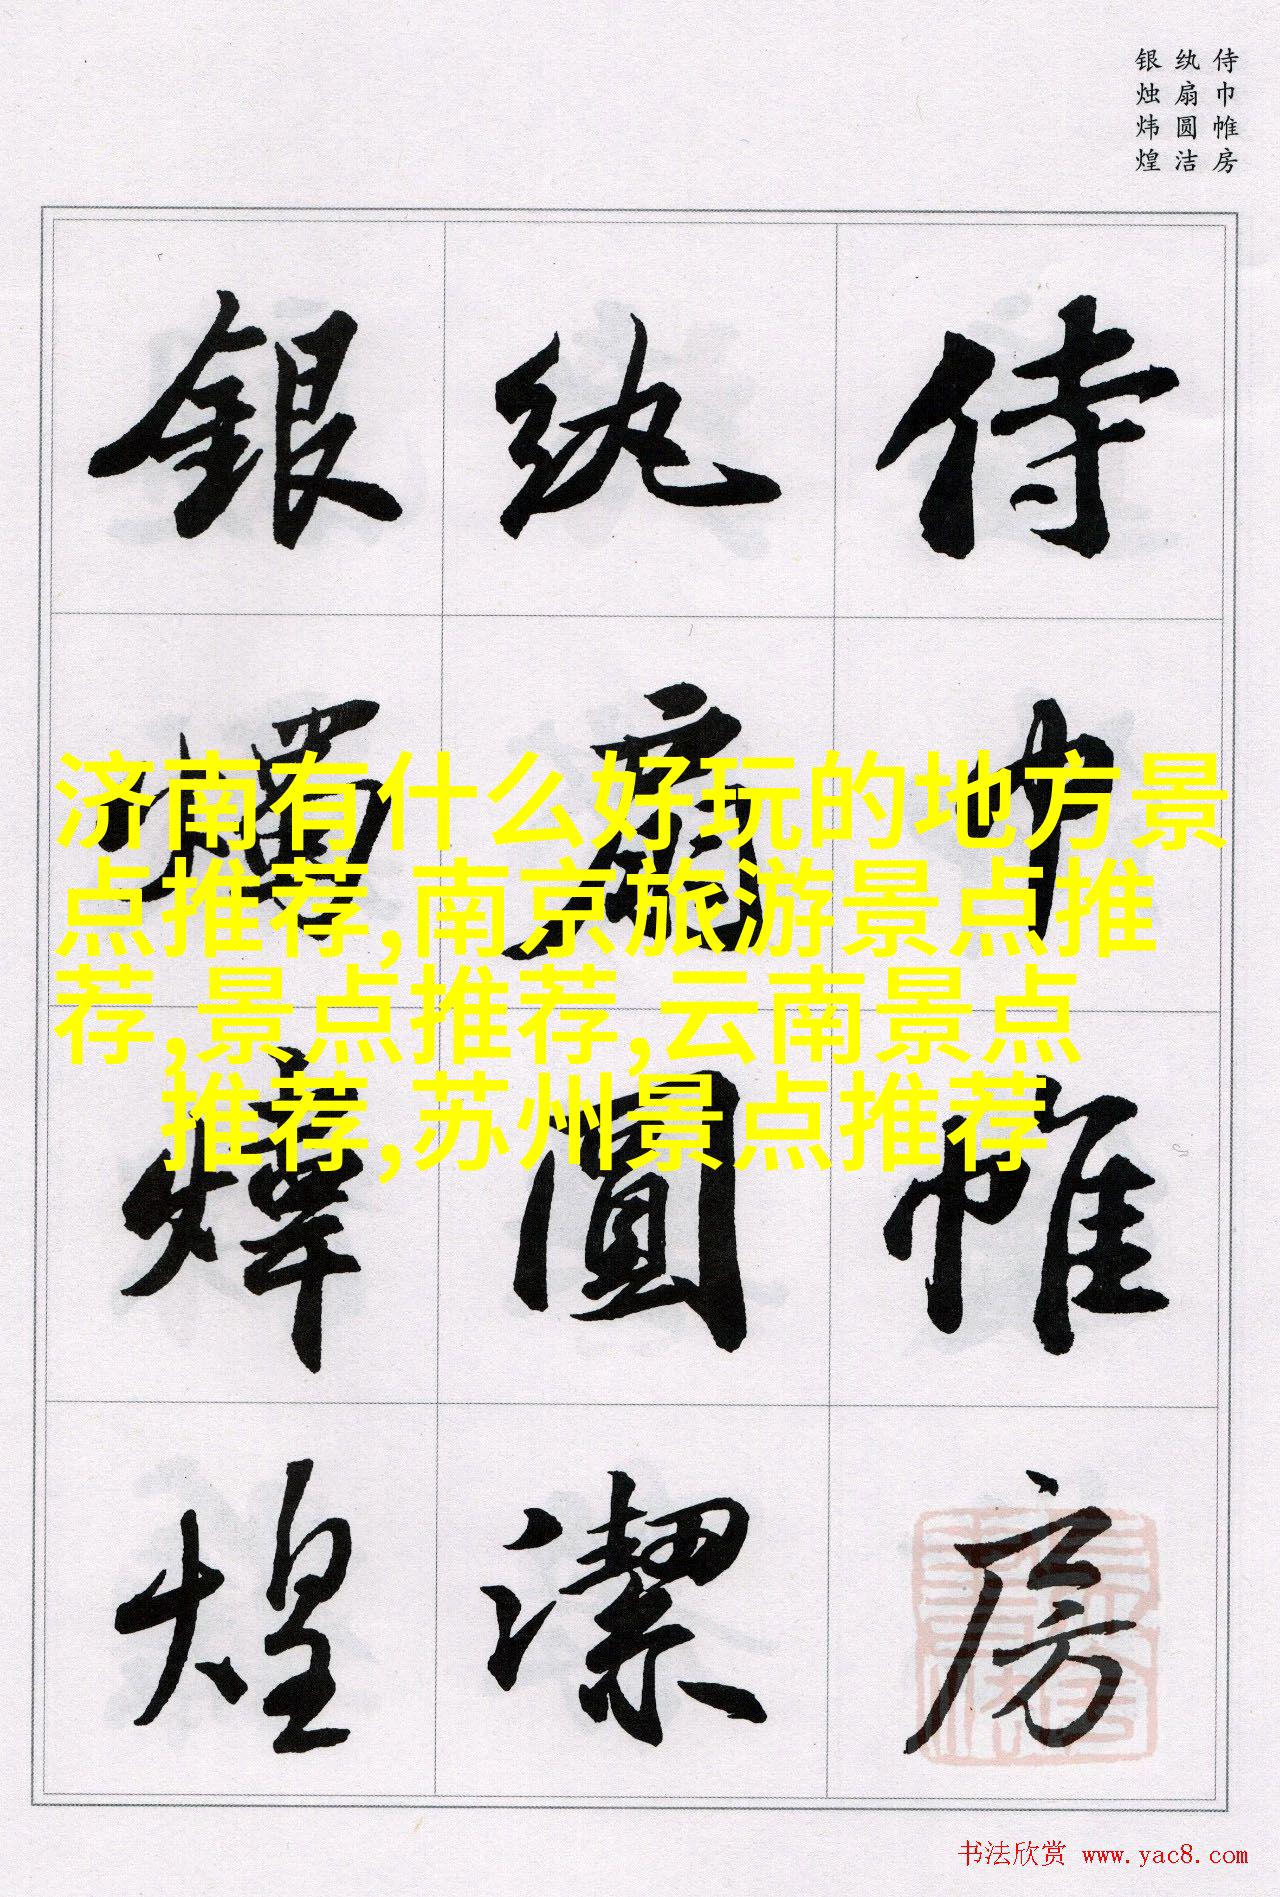 侍巾帷房
纨扇圆洁
银烛炜煌
侍巾帷房
纨扇圓潔
銀燭煒煌
济南有什么好玩的地方景
点推荐,南京旅游景点推
荐,景点推荐,云南景点
推荐,苏州景点推荐
书法欣赏 www.yac8.com